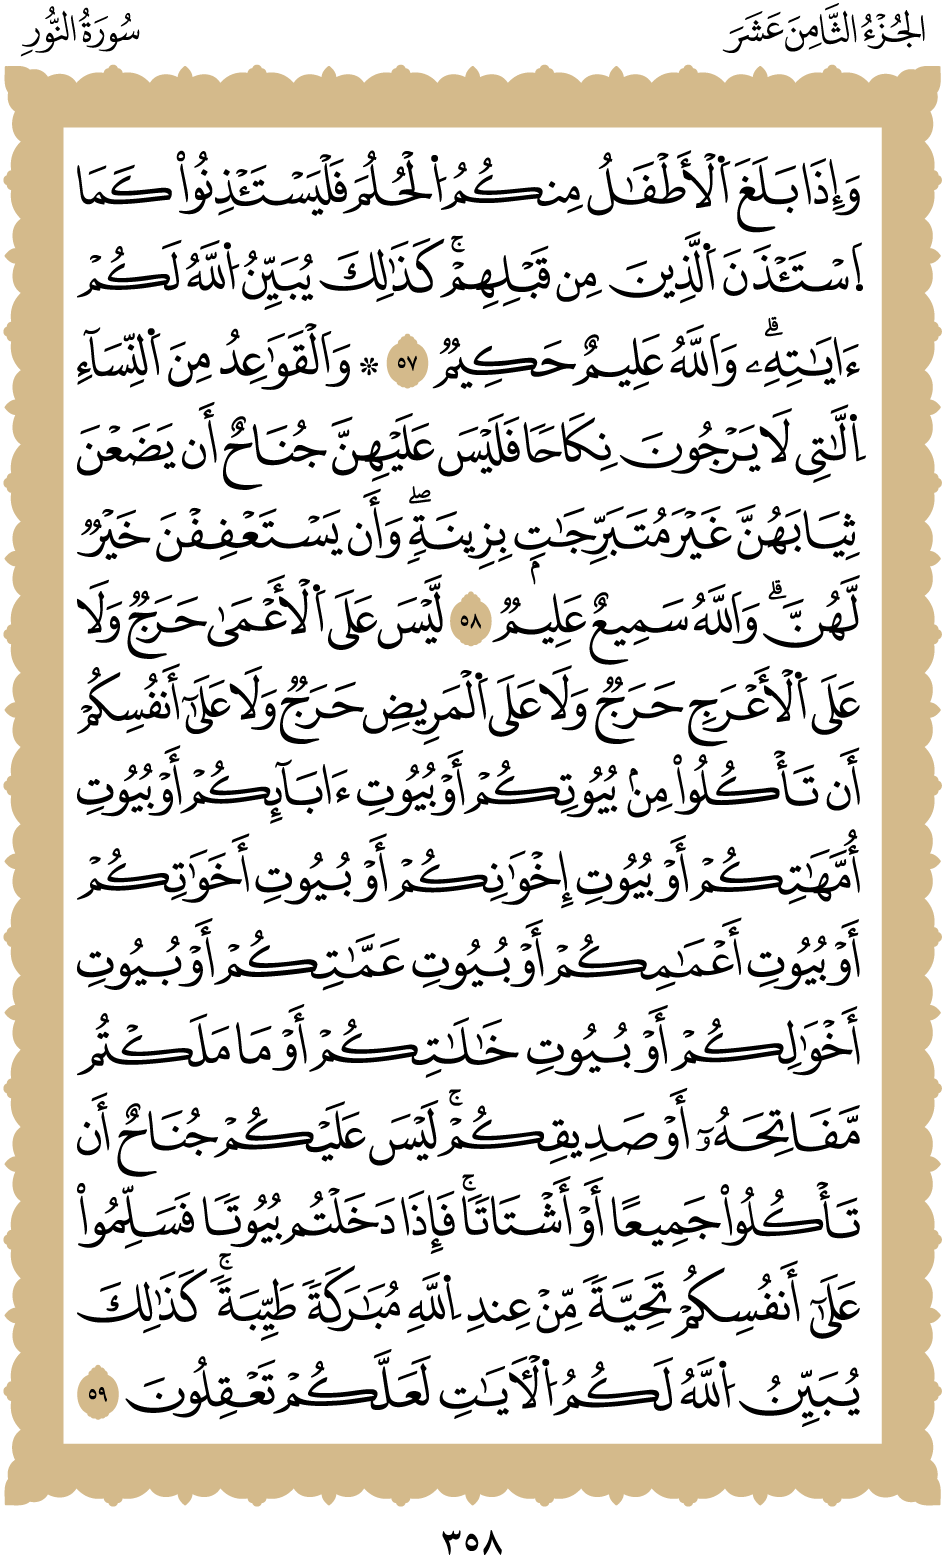 الجُزْءُ الثَّامِنَ عَشَرَ
سُورَةُ النُّورِ
وَإِذَا بَلَغَ اَ۬لْأَطْفَٰلُ مِنكُمُ اُ۬لْحُلُمَ فَلْيَسْتَـْٔذِنُواْ كَمَا
اَ۪سْتَـْٔذَنَ اَ۬لَّذِينَ مِن قَبْلِهِمْۚ كَذَٰلِكَ يُبَيِّنُ اُ۬للَّهُ لَكُمْ
ءَايَٰتِهِۦۗ وَاَللَّهُ عَلِيمٌ حَكِيمٞ ٥٧ ۞ وَاَلْقَوَٰعِدُ مِنَ اَ۬لنِّسَآءِ
اِ۬لَّٰتِي لَا يَرْجُونَ نِكَاحٗا فَلَيْسَ عَلَيْهِنَّ جُنَاحٌ أَن يَضَعْنَ
ثِيَابَهُنَّ غَيْرَ مُتَبَرِّجَٰتِۭ بِزِينَةٖۖ وَأَن يَسْتَعْفِفْنَ خَيْرٞ
لَّهُنَّۗ وَاَللَّهُ سَمِيعٌ عَلِيمٞ ٥٨ لَّيْسَ عَلَى اَ۬لْأَعْمَىٰ حَرَجٞ وَلَا
عَلَى اَ۬لْأَعْرَجِ حَرَجٞ وَلَا عَلَى اَ۬لْمَرِيضِ حَرَجٞ وَلَا عَلَىٰٓ أَنفُسِكُمْ
أَن تَأْكُلُواْ مِنۢ بُيُوتِكُمْ أَوْ بُيُوتِ ءَابَآئِكُمْ أَوْ بُيُوتِ
أُمَّهَٰتِكُمْ أَوْ بُيُوتِ إِخْوَٰنِكُمْ أَوْ بُيُوتِ أَخَوَٰتِكُمْ
أَوْ بُيُوتِ أَعْمَٰمِكُمْ أَوْ بُيُوتِ عَمَّٰتِكُمْ أَوْ بُيُوتِ
أَخْوَٰلِكُمْ أَوْ بُيُوتِ خَٰلَٰتِكُمْ أَوْ مَا مَلَكْتُم
مَّفَاتِحَهُۥٓ أَوْ صَدِيقِكُمْۚ لَيْسَ عَلَيْكُمْ جُنَاحٌ أَن
تَأْكُلُواْ جَمِيعًا أَوْ أَشْتَاتٗاۚ فَإِذَا دَخَلْتُم بُيُوتٗا فَسَلِّمُواْ
عَلَىٰٓ أَنفُسِكُمْ تَحِيَّةٗ مِّنْ عِندِ اِ۬للَّهِ مُبَٰرَكَةٗ طَيِّبَةٗۚ كَذَٰلِكَ
يُبَيِّنُ اُ۬للَّهُ لَكُمُ اُ۬لْأٓيَٰتِ لَعَلَّكُمْ تَعْقِلُونَ ٥٩
٣٥٨